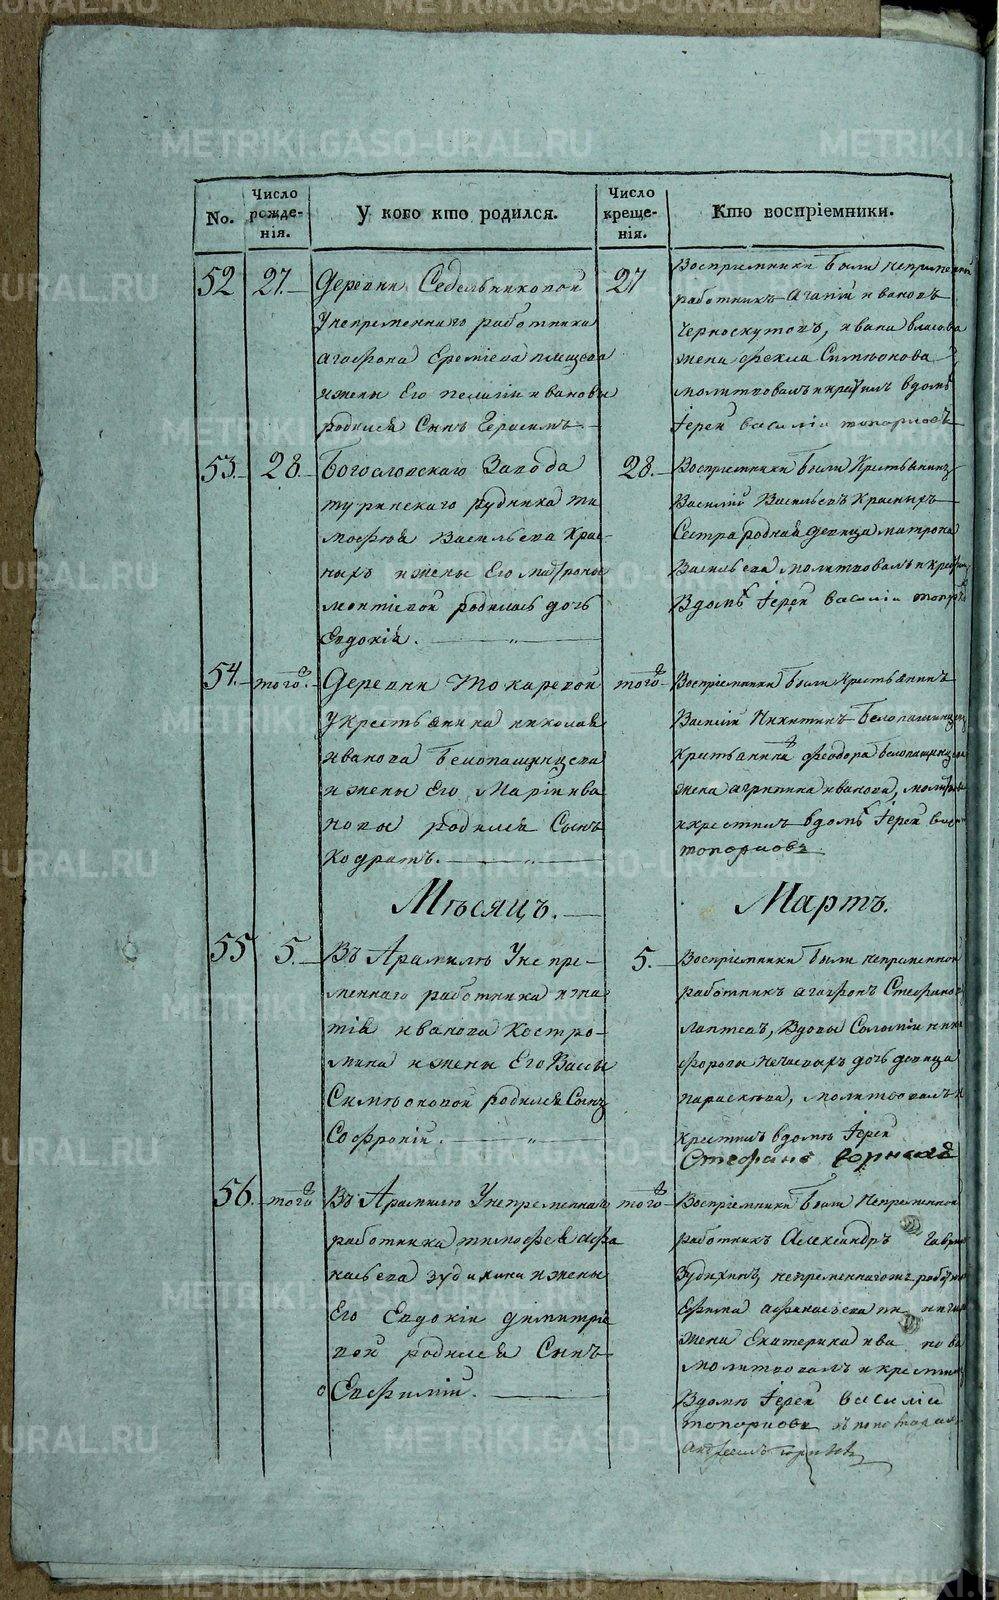 No.
Число рожде-нія.
У кого кто родился.
Число креще-нія.
Кто воспріемники.
52 27. Деревни Седельниковой
Унепременнаго работника
агафона Еремѣева
ижены Его пелагіи ивановы
родился Сынъ Герасимъ
27
Воспріемники были непременной
работникъ агапій ивановъ
Черноскутовъ, ивана власова
жена фекла Симионова
молитвовалъ икрестилъ вдомѣ
Іерей василій топорковъ
53. 28. Богословскаго Завода
туринскаго рудника ти
мофея Васильева Крас-
ныхъ ижены Его матроны
родилась дочь
Евдокія.
28.
Воспріемники были Крестьянинъ
Василій Васильевъ Красныхъ
Сестра родная девица матрона
Васильева молитвовалъ икрестилъ
Вдомѣ Іерей василій топорковъ
54. того. Деревни Токаревой
укрестьянина николая
иванова Белопашинцева
ижены Его Маріи ива
новы родился Сынъ
Кодратъ.
того
Воспріемники были крестьянинъ
Василій Никитинъ Белопашинцевъ
крестьянина феодора белопашинцева
жена агрипина иванова,
икрестилъ вдомѣ Іерей
топорковъ
Мѣсяцъ. Мартъ.
55 5. Въ Арамилѣ Унепре-
меннаго работника игна
тія иванова Костро-
мина ижены Его Вассы
Симионовой родился Сынъ
Софроній.
5.
Воспріемники были непременной
работникъ агафонъ Стефановъ
лаптевъ, Вдовы Соломіи ники
форовы нечаевыхъ дочь девица
параскева, молитвовалъ и
крестилъ вдомѣ Іерей
Стефанъ
56. того Въ Арамилѣ Унепременнаго
работника тимофея афа
насьева зудихина ижены
Его Евдокіи димитріе
вой родился Сынъ
Евфимій.
того
Воспріемники были Непременной
работникъ Александръ
Зудихинъ, непременнагожъ
Ефима афанасьева
жена Екатерина ива нова
молитвовалъ икрестилъ
Вдомѣ Іерей василій
топорковъ